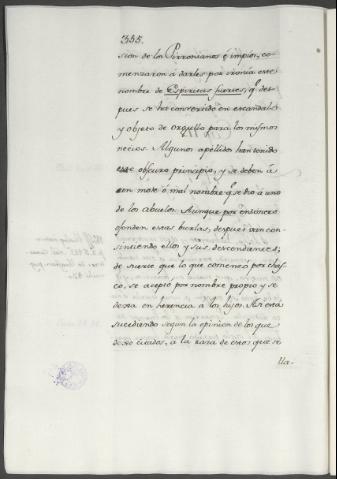 355.
sion de los Pirronianos é impíos, co-
menzaron à darles por ironía este
nombre de Espiritus fuertes, qe. des-
pues se ha convertido en escandalo
y objeto de orgullo para los mismos
necios. Algunos apellidos han tenido
este obscuro principio, y se deben à
un mote ò mal nombre qe. se dio à uno
de los abuelos. Aunque por entonces
ofenden estas burlas, despues van con-
sintiendo ellos y sus descendientes;
de suerte que lo que comenzó por chas-
co, se acepta por nombre propio y se
dexa en herencia a los hijos. Asi está
sucediendo segun la opinion de los que
dexo citados, a la raza de estos que se
lla-